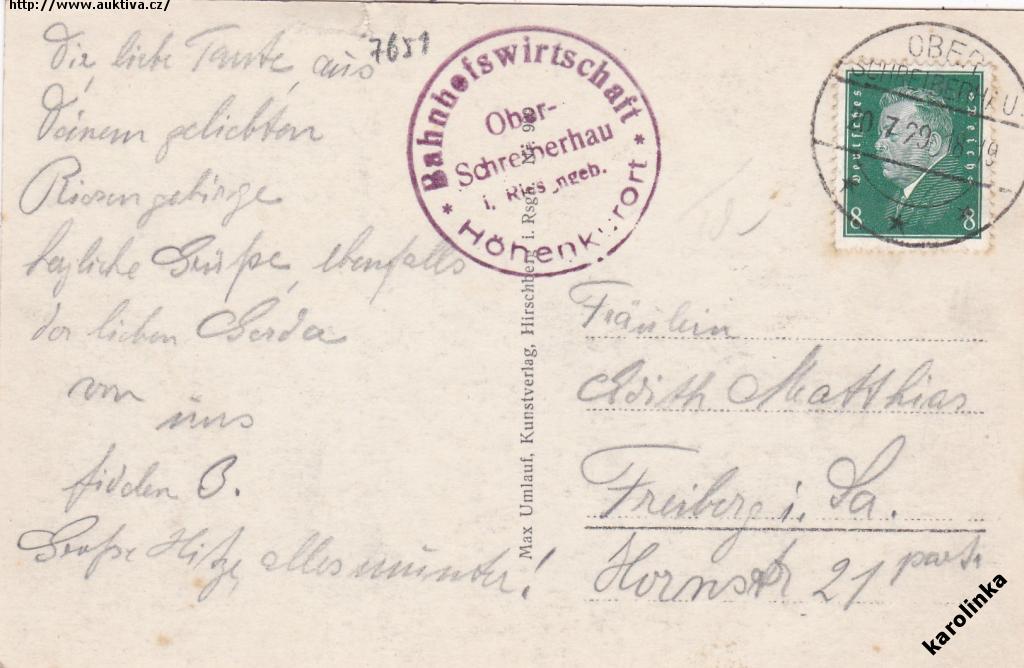 http://www.auktiva.cz/
7651
Dir, liebe Tante, aus
Deinem geliebten
Riesengebirge
herzliche Grüße, ebenfalls
der lieben Gerda
von
uns
fidelen 3.
Große Hitze, alles munter!
Bahnhofswirtschaft
Ober-
Schreiberhau
i. Riesengeb.
* Höhenkurort *
Max Umlauf, Kunstverlag, Hirschberg i. Rsgb.
OBER
SCHREIBERHAU
Deutsches Reich
8 8
Fräulein
Edith Matthias
Freiberg i. Sa.
Hornstr 21 part.
karolinka